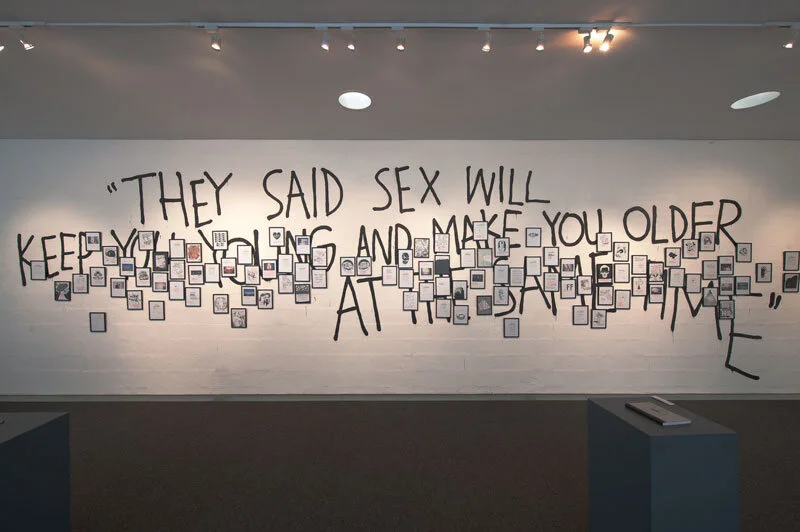 "THEY SAID SEX WILL
KEEP YOU YOUNG AND MAKE YOU OLDER
AT THE SAME TIME"